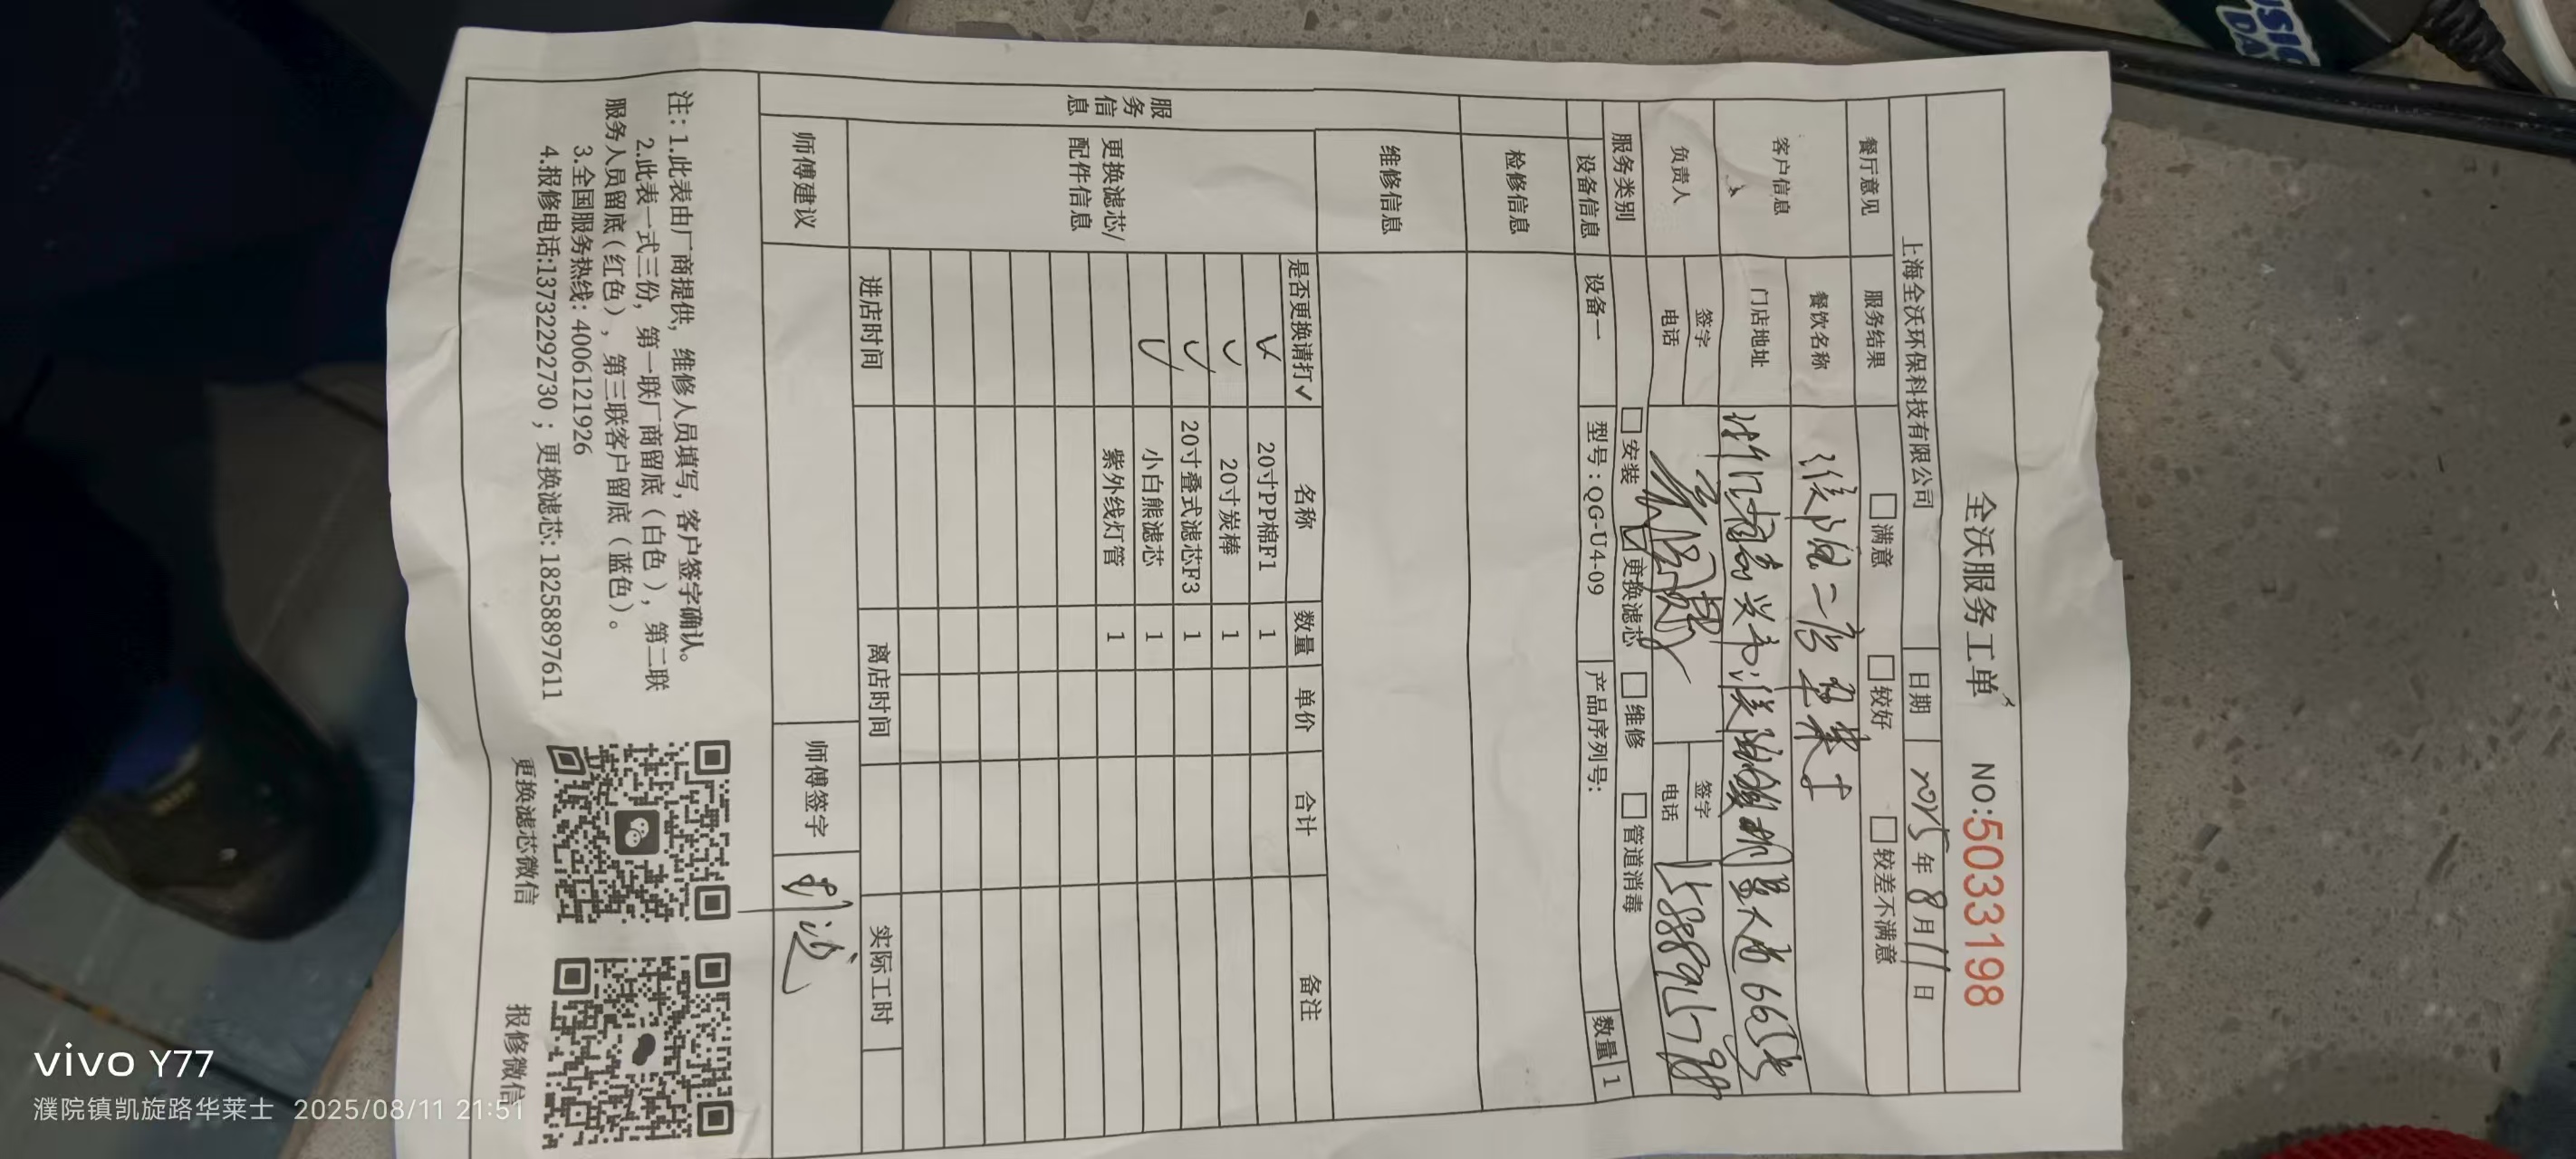 全沃服务工单 NO:5033198
上海全沃环保科技有限公司 日期 2025年8月11日
餐厅意见 服务结果 □满意 □较好 □较差不满意
客户信息 餐饮名称 濮院二店华莱士
门店地址 浙江省嘉兴市濮院镇凯旋大道665号
负责人 签字 签字
电话 电话
服务类别 □安装 ☑更换滤芯 □维修 □管道消毒
设备信息 设备一 型号：QG-U4-09 产品序列号： 数量 1
检修信息
维修信息
服务信息
更换滤芯/配件信息
是否更换请打✓ 名称 数量 单价 合计 备注
✓ 20寸PP棉F1 1
✓ 20寸炭棒 1
✓ 20寸叠式滤芯F3 1
✓ 小白熊滤芯 1
紫外线灯管 1
进店时间 离店时间 实际工时
师傅建议 师傅签字
注：1.此表由厂商提供，维修人员填写，客户签字确认。
2.此表一式三份，第一联厂商留底（白色），第二联
服务人员留底（红色），第三联客户留底（蓝色）。
3.全国服务热线：4006121926
4.报修电话:13732292730；更换滤芯:18258897611
更换滤芯微信 报修微信
USIC
DA
vivo Y77
濮院镇凯旋路华莱士 2025/08/11 21:51